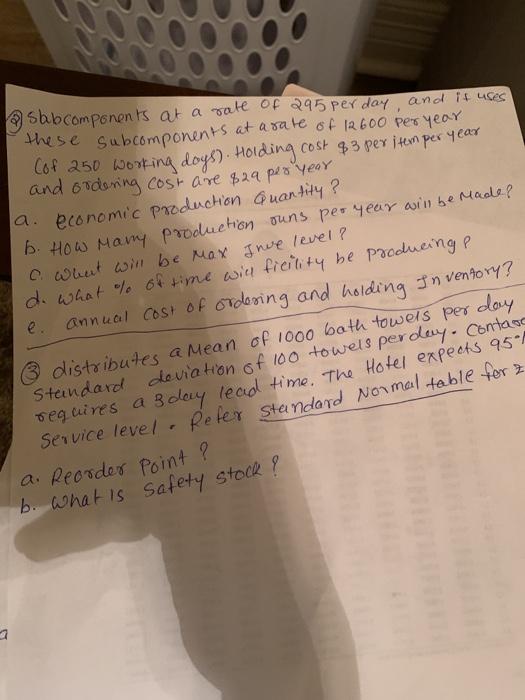 ② Subcomponents at a rate of 295 per day, and it uses
these subcomponents at a rate of 12600 per year
(of 250 working days). Holding cost $3 per item per year
and ordering cost are $29 per year
a. economic production Quantity?
b. How Many production runs per year will be Made?
c. what will be Max Inve level?
d. what % of time will ficility be producing?
e. annual cost of ordering and holding Inventory?
③ distributes a Mean of 1000 bath towels per day
Standard deviation of 100 towels per day.
requires a 3 day lead time. The Hotel expects 95%
Service level. Refer Standard Normal table for z
a. Reorder Point?
b. What is safety stock?